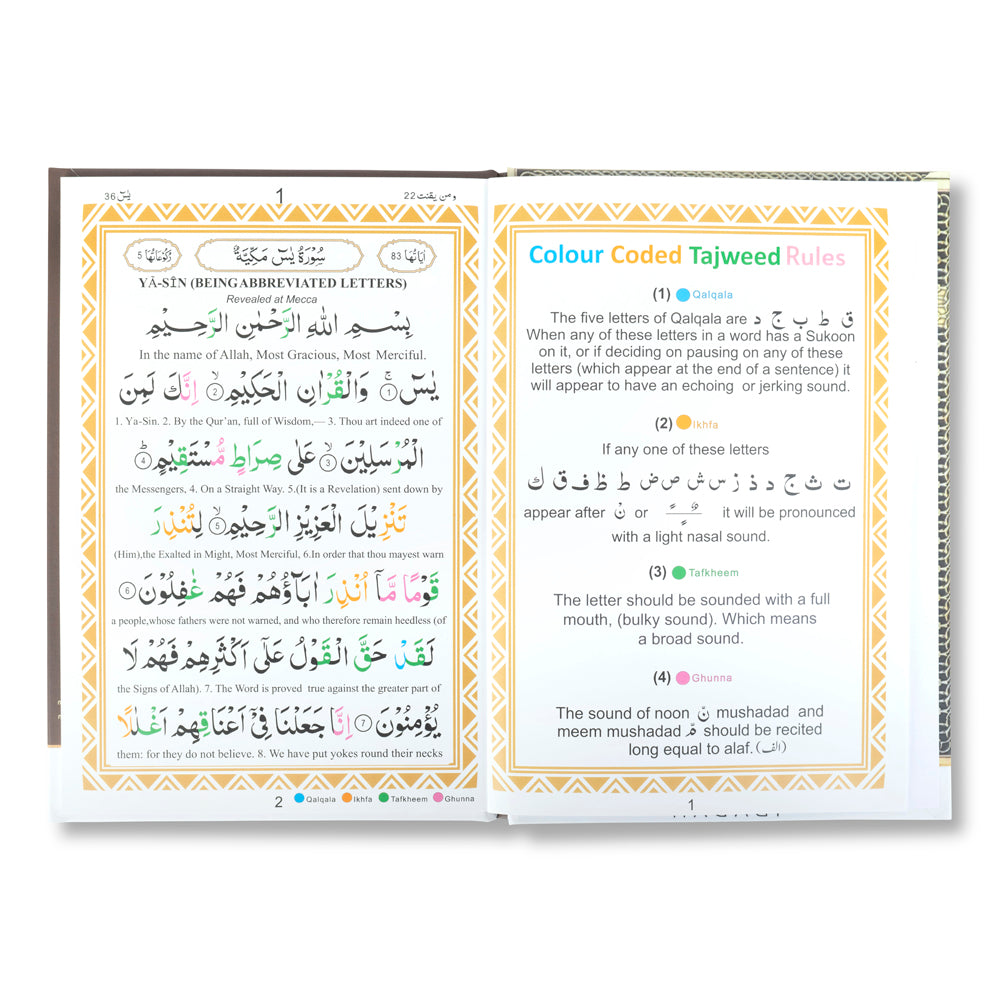 Colour Coded Tajweed Rules
(1) Qalqala
The five letters of Qalqala are ق ط ب ج د
When any of these letters in a word has a Sukoon
on it, or if deciding on pausing on any of these
letters (which appear at the end of a sentence) it
will appear to have an echoing or jerking sound.
(2) Ikhfa
If any one of these letters
ت ث ج د ذ ز س ش ص ض ط ظ ف ق ك
appear after نْ or ـًـٍـٌ it will be pronounced
with a light nasal sound.
(3) Tafkheem
The letter should be sounded with a full
mouth, (bulky sound). Which means
a broad sound.
(4) Ghunna
The sound of noon نّ mushadad and
meem mushadad مّ should be recited
long equal to alaf. (الف)
1
يٰسٓ 36
1
ومن يقنت 22
اٰيَاتُهَا 83
سُوْرَةُ يٰسٓ مَكِّيَّةٌ
رُكُوْعَاتُهَا 5
YĀ-SĪN (BEING ABBREVIATED LETTERS)
Revealed at Mecca
بِسْمِ اللهِ الرَّحْمٰنِ الرَّحِيْمِ
In the name of Allah, Most Gracious, Most Merciful.
يٰسٓ ۚ ﴿1﴾ وَالْقُرْاٰنِ الْحَكِيْمِ ۙ ﴿2﴾ اِنَّكَ لَمِنَ
1. Ya-Sin. 2. By the Qur'an, full of Wisdom,— 3. Thou art indeed one of
الْمُرْسَلِيْنَ ۙ ﴿3﴾ عَلٰى صِرَاطٍ مُّسْتَقِيْمٍ ؕ ﴿4﴾
the Messengers, 4. On a Straight Way. 5.(It is a Revelation) sent down by
تَنْزِيْلَ الْعَزِيْزِ الرَّحِيْمِ ۙ ﴿5﴾ لِتُنْذِرَ
(Him),the Exalted in Might, Most Merciful, 6.In order that thou mayest warn
قَوْمًا مَّاۤ اُنْذِرَ اٰبَآؤُهُمْ فَهُمْ غٰفِلُوْنَ ﴿6﴾
a people,whose fathers were not warned, and who therefore remain heedless (of
لَقَدْ حَقَّ الْقَوْلُ عَلٰٓى اَكْثَرِهِمْ فَهُمْ لَا
the Signs of Allah). 7. The Word is proved true against the greater part of
يُؤْمِنُوْنَ ﴿7﴾ اِنَّا جَعَلْنَا فِىْۤ اَعْنَاقِهِمْ اَغْلٰلًا
them: for they do not believe. 8. We have put yokes round their necks
2 Qalqala Ikhfa Tafkheem Ghunna